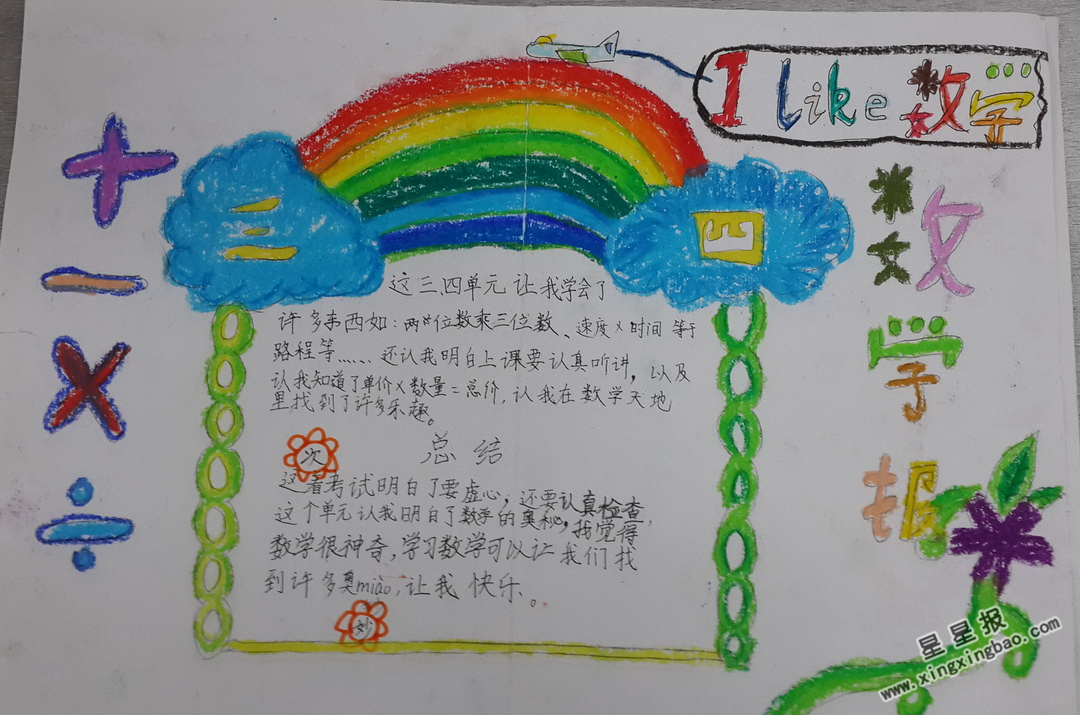 I Like 数学
数学报
三
四
+
−
×
÷
这三、四单元让我学会了
许多东西如：两位数乘三位数、速度×时间等于
路程等……、还认我明白上课要认真听讲，以及
认我知道了单价×数量=总价，认我在数学天地
里找到了许多乐趣。
总结
次
这看考试明白了要虚心，还要认真检查，
这个单元认我明白了数学的奥秘，我觉得
数学很神奇，学习数学可以让我们找
到许多奥miào，让我快乐。
妙
星星报
www.xingxingbao.com